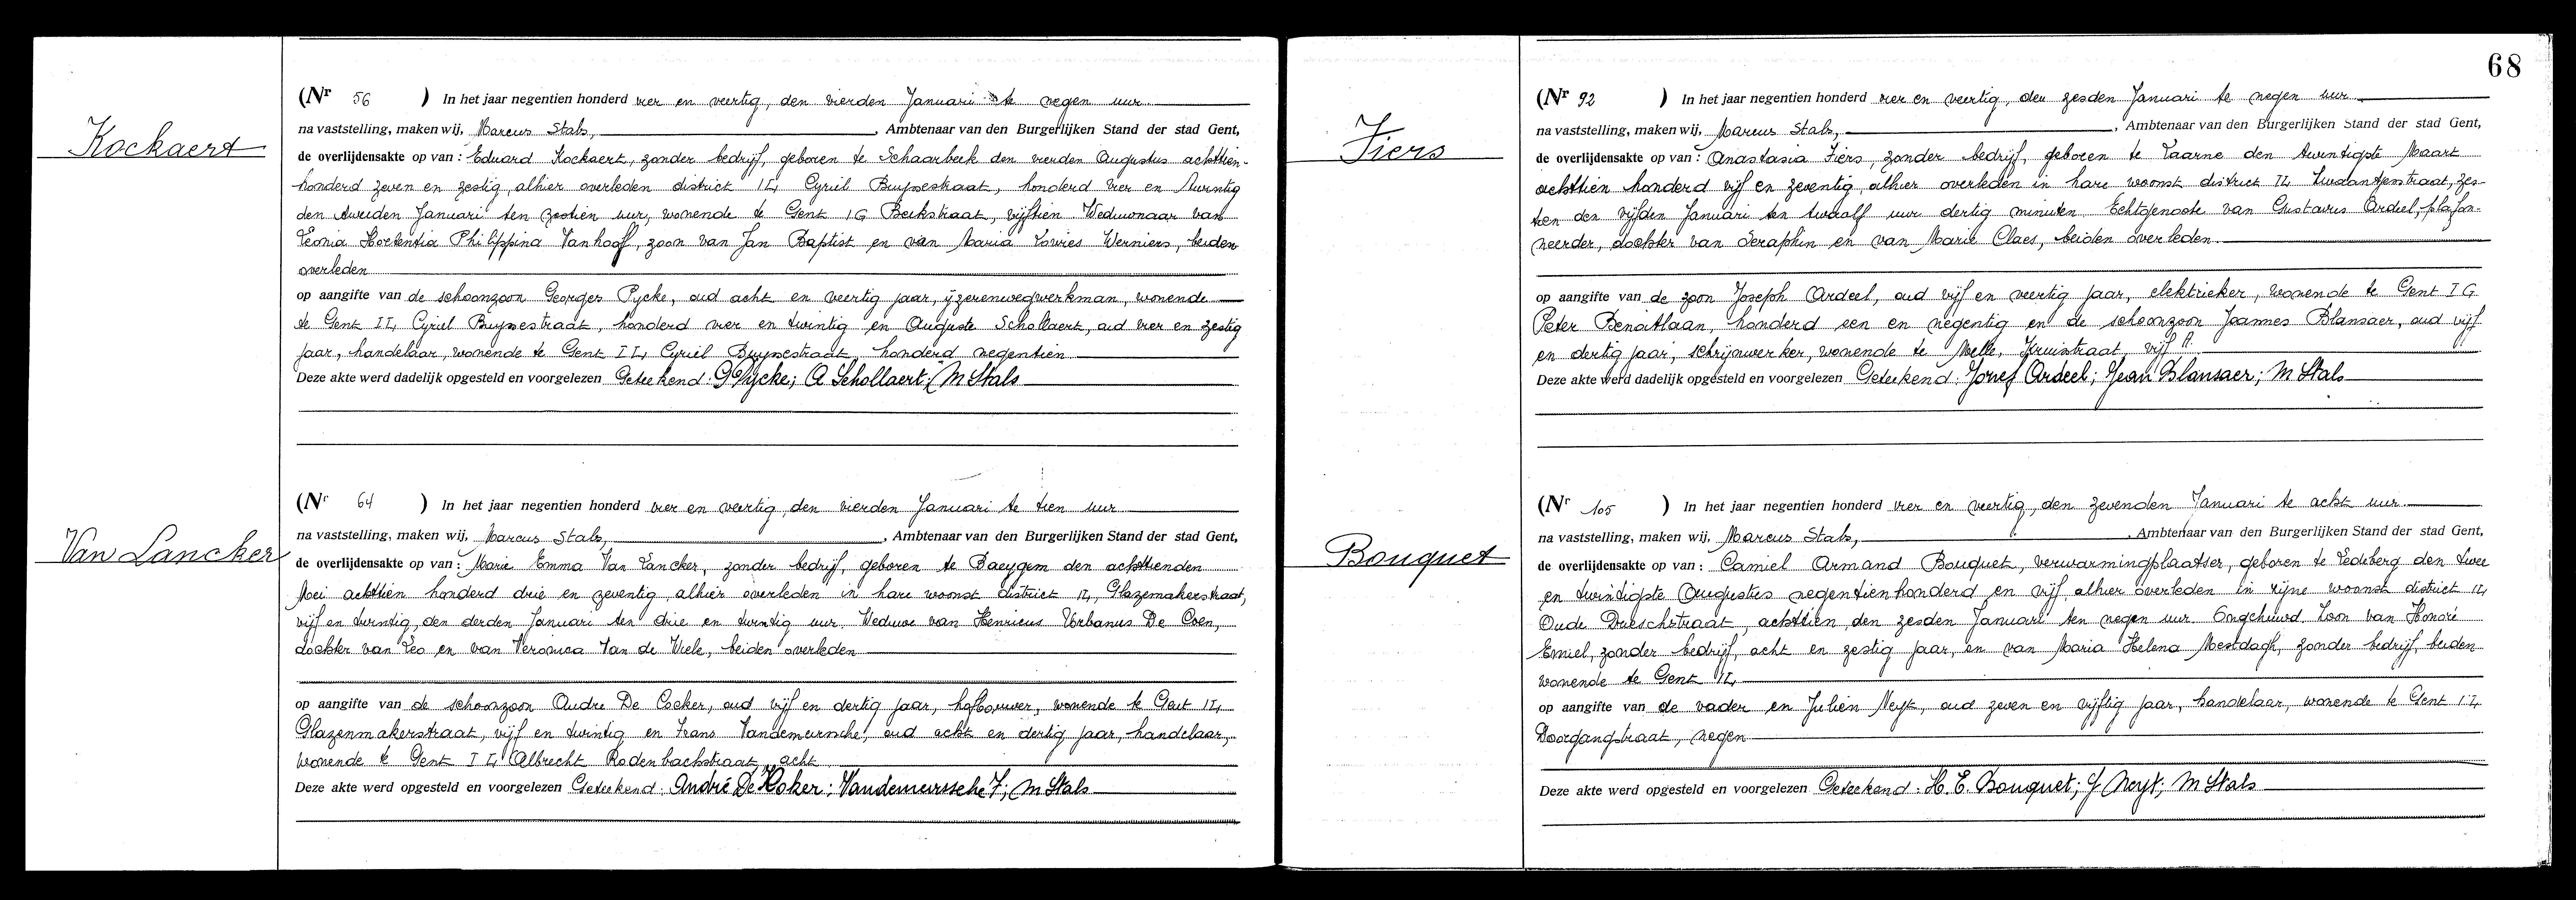 Kockaert
(Nr 56 ) In het jaar negentien honderd vier en veertig, den vierden Januari te negen uur
na vaststelling, maken wij, Marcus Stals, , Ambtenaar van den Burgerlijken Stand der stad Gent,
de overlijdensakte op van : Eduard Kockaert, zonder bedrijf, geboren te Schaarbeek den vierden Augustus achttien-
honderd zeven en zestig, alhier overleden district I4, Cyriel Buyssestraat, honderd vier en twintig
den tweeden Januari ten zestien uur, wonende te Gent 1G Beekstraat, vijftien. Weduwnaar van
Leonia Hortentia Philippina Vanhoof, zoon van Jan Baptist en van Maria Lowies Werniers, beiden
overleden
op aangifte van de schoonzoon Georges Pycke, oud acht en veertig jaar, ijzerenwegwerkman, wonende
te Gent I4, Cyriel Buyssestraat, honderd vier en twintig en Auguste Schollaert, oud vier en zestig
jaar, handelaar, wonende te Gent I4, Cyriel Buyssestraat, honderd negentien
Deze akte werd dadelijk opgesteld en voorgelezen Geteekend: G Pycke; A Schollaert; M Stals
Van Lancker
(Nr 64 ) In het jaar negentien honderd vier en veertig, den vierden Januari te tien uur
na vaststelling, maken wij, Marcus Stals, , Ambtenaar van den Burgerlijken Stand der stad Gent,
de overlijdensakte op van : Marie Emma Van Lancker, zonder bedrijf, geboren te Baeygem den achttienden
Mei achttien honderd drie en zeventig, alhier overleden in hare woonst district I4, Glazemakerstraat,
vijf en twintig, den derden Januari ten drie en twintig uur. Weduwe van Henricus Urbanus De Coen,
dochter van Leo en van Veronica Van de Wiele, beiden overleden
op aangifte van de schoonzoon Andre De Cocker, oud vijf en dertig jaar, hofbouwer, wonende te Gent I4
Glazenmakerstraat, vijf en twintig en Frans Vandemeursche, oud acht en dertig jaar, handelaar,
wonende te Gent I4 Albrecht Rodenbachstraat, acht
Deze akte werd opgesteld en voorgelezen Geteekend: André De Koker; Vandemeurssche F; M Stals
68
Fiers
(Nr 92 ) In het jaar negentien honderd vier en veertig, den zesden Januari te negen uur
na vaststelling, maken wij, Marcus Stals, , Ambtenaar van den Burgerlijken Stand der stad Gent,
de overlijdensakte op van : Anastasia Fiers, zonder bedrijf, geboren te Laarne den twintigste Maart
achttien honderd vijf en zeventig, alhier overleden in hare woonst district I4 zes-
tien den vijfden Januari ten twaalf uur dertig minuten. Echtgenoote van Gustavus Ardeel, plafon-
neerder, dochter van Seraphin en van Marie Claes, beiden overleden.
op aangifte van de zoon Joseph Ardeel, oud vijf en veertig jaar, elektrieker, wonende te Gent I G
Peter Benoitlaan, honderd een en negentig en de schoonzoon Joannes Blansaer, oud vijf
en dertig jaar, schrijnwerker, wonende te Melle, Kruisstraat, vijf A.
Deze akte werd dadelijk opgesteld en voorgelezen Geteekend: Jozef Ardeel; Jean Blansaer; M Stals
Bouquet
(Nr 105 ) In het jaar negentien honderd vier en veertig, den zevenden Januari te acht uur.
na vaststelling, maken wij, Marcus Stals, , Ambtenaar van den Burgerlijken Stand der stad Gent,
de overlijdensakte op van : Camiel Armand Bouquet, verwarmingplaatser, geboren te Ledeberg den twee
en twintigste Augustus negentienhonderd en vijf, alhier overleden in zijne woonst district I4
Oude Drieschstraat, achttien, den zesden Januari ten negen uur. Ongehuwd. Zoon van Honoré
Emiel, zonder bedrijf, acht en zestig jaar, en van Maria Helena Mestdagh, zonder bedrijf, beiden
wonende te Gent I4
op aangifte van de vader en Julien Neyt, oud zeven en vijftig jaar, handelaar, wonende te Gent I4
Doorgangstraat, negen
Deze akte werd opgesteld en voorgelezen Geteekend: H. E. Bouquet; J Neyt; M Stals